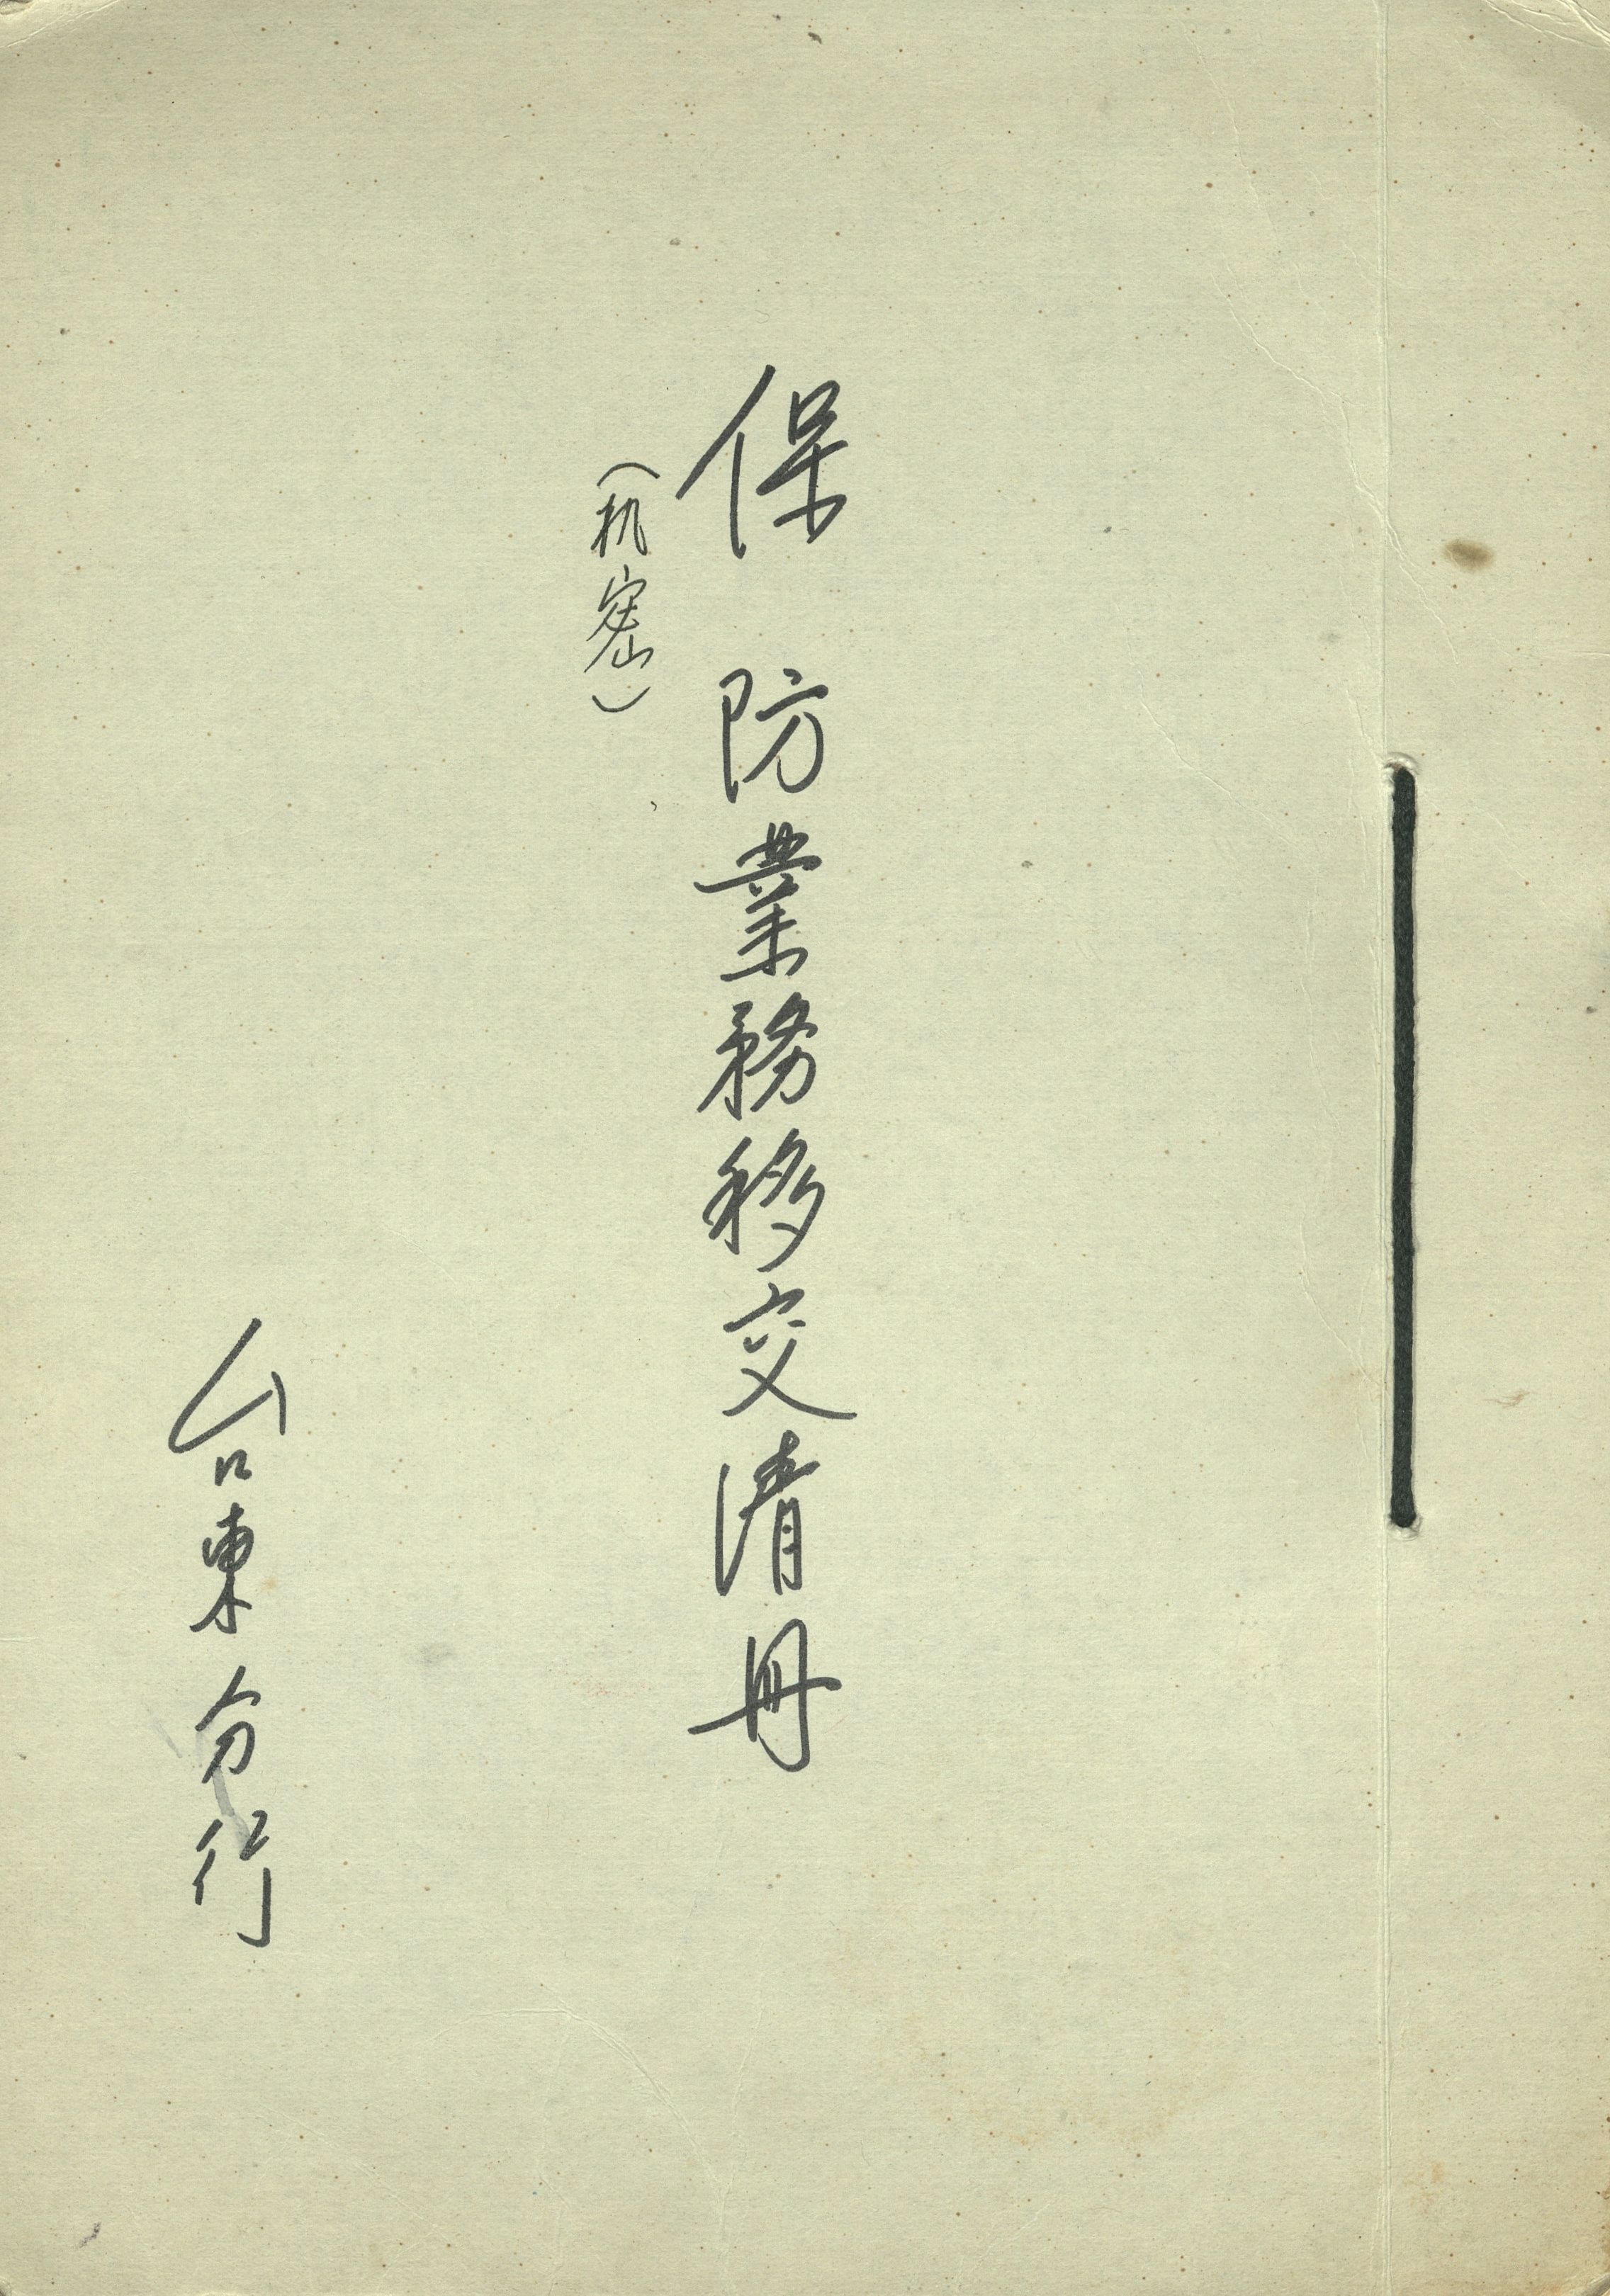 保防業務移交清册
（机密）
台東分行